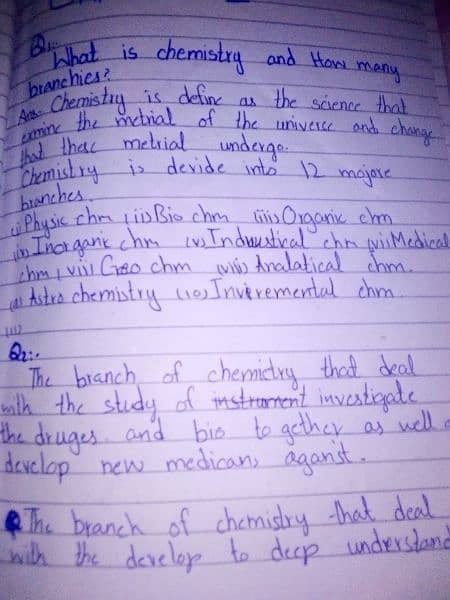 Q1:.
What is chemistry and How many
branchies?
Ans: Chemistry is define as the science that
exmine the metrial of the universe and change
that these metrial undergo.
Chemistry is devide into 12 majore
branches.
(i) Physic chm (ii) Bio chm (iii) Organic chm
(iv) Inorganic chm (v) Industical chm (vi) Medical
chm (vii) Geo chm (viii) Analatical chm.
(9) Astro chemistry (10) Inviremental chm
(11)
Q2:.
The branch of chemictry that deal
with the study of instrument investigate
the druges and bio to gether as well
develop new medicans aganist.
The branch of chemistry that deal
with the develop to deep understand